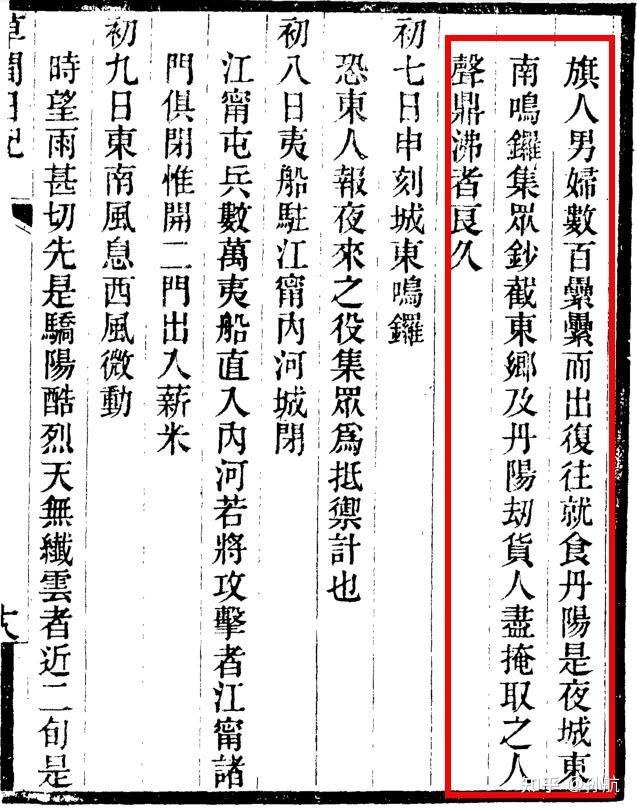 旗人男婦數百纍纍而出復往就食丹陽是夜城東
南鳴鑼集眾鈔截東鄉及丹陽刧貨人盡掩取之人
聲鼎沸者良久
初七日申刻城東鳴鑼
恐東人報夜來之役集眾爲抵禦計也
初八日夷船駐江甯內河城閉
江甯屯兵數萬夷船直入內河若將攻擊者江甯諸
門俱閉惟開二門出入薪米
初九日東南風息西風微動
時望雨甚切先是驕陽酷烈天無纖雲者近二旬是
草間日記
知乎 @孙航